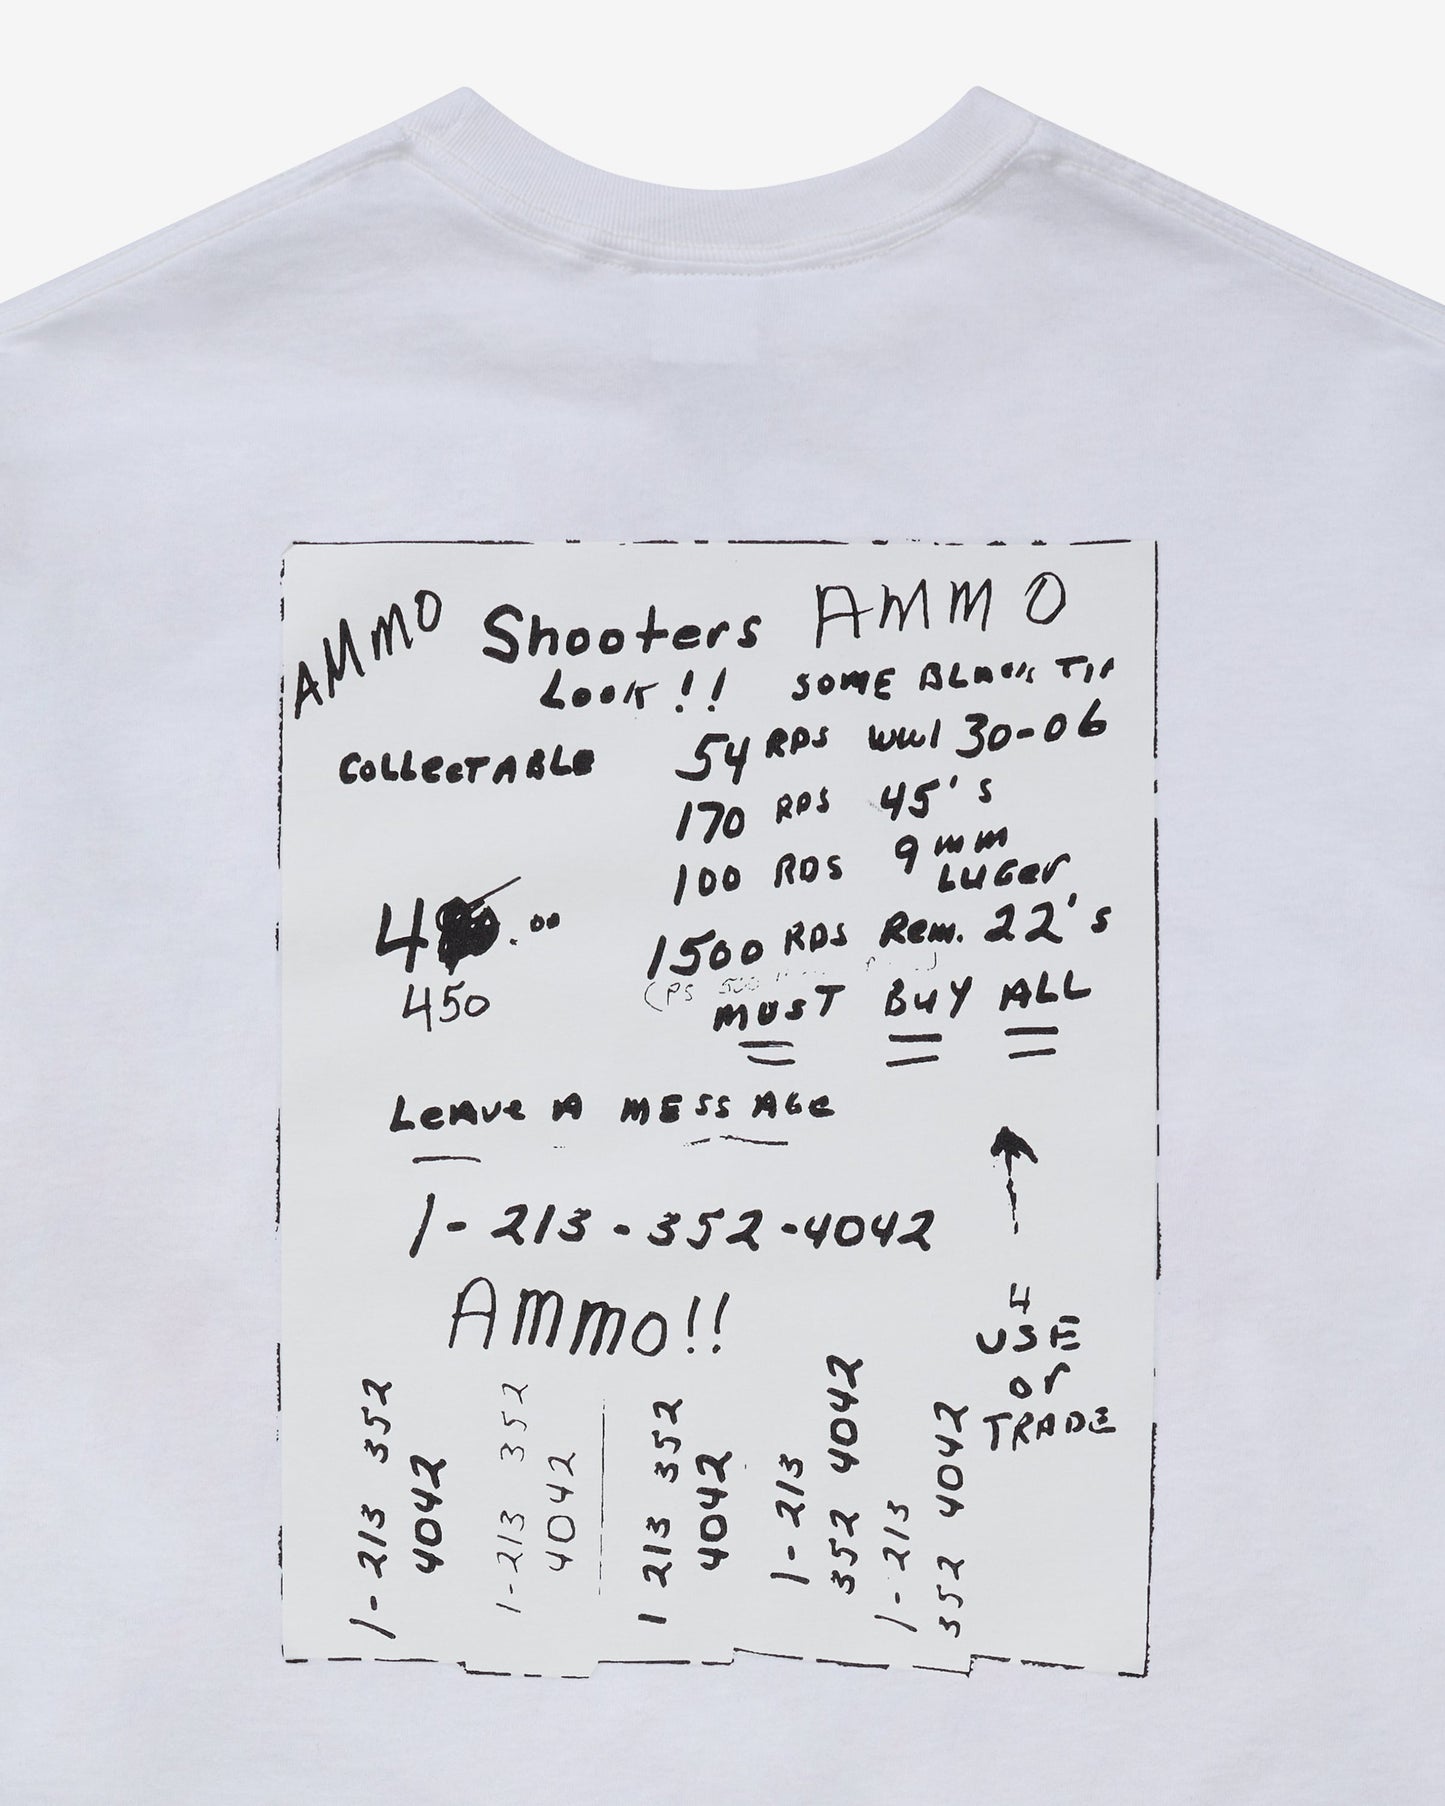 AMMO Shooters AMMO
Look!! SOME BLACK TIP
COLLECTABLE 54 RDS WWI 30-06
170 RDS 45's
100 RDS 9mm
LUGer
4 .00 1500 RDS Rem. 22's
(PS 500
450 MUST BUY ALL
LeAVe A MESSAGe
1-213-352-4042
AMMO!!
4
USE
or
TRADE
1-213 352
4042
1-213 352
4042
1 213 352
4042
1-213
352 4042
1-213
352 4042